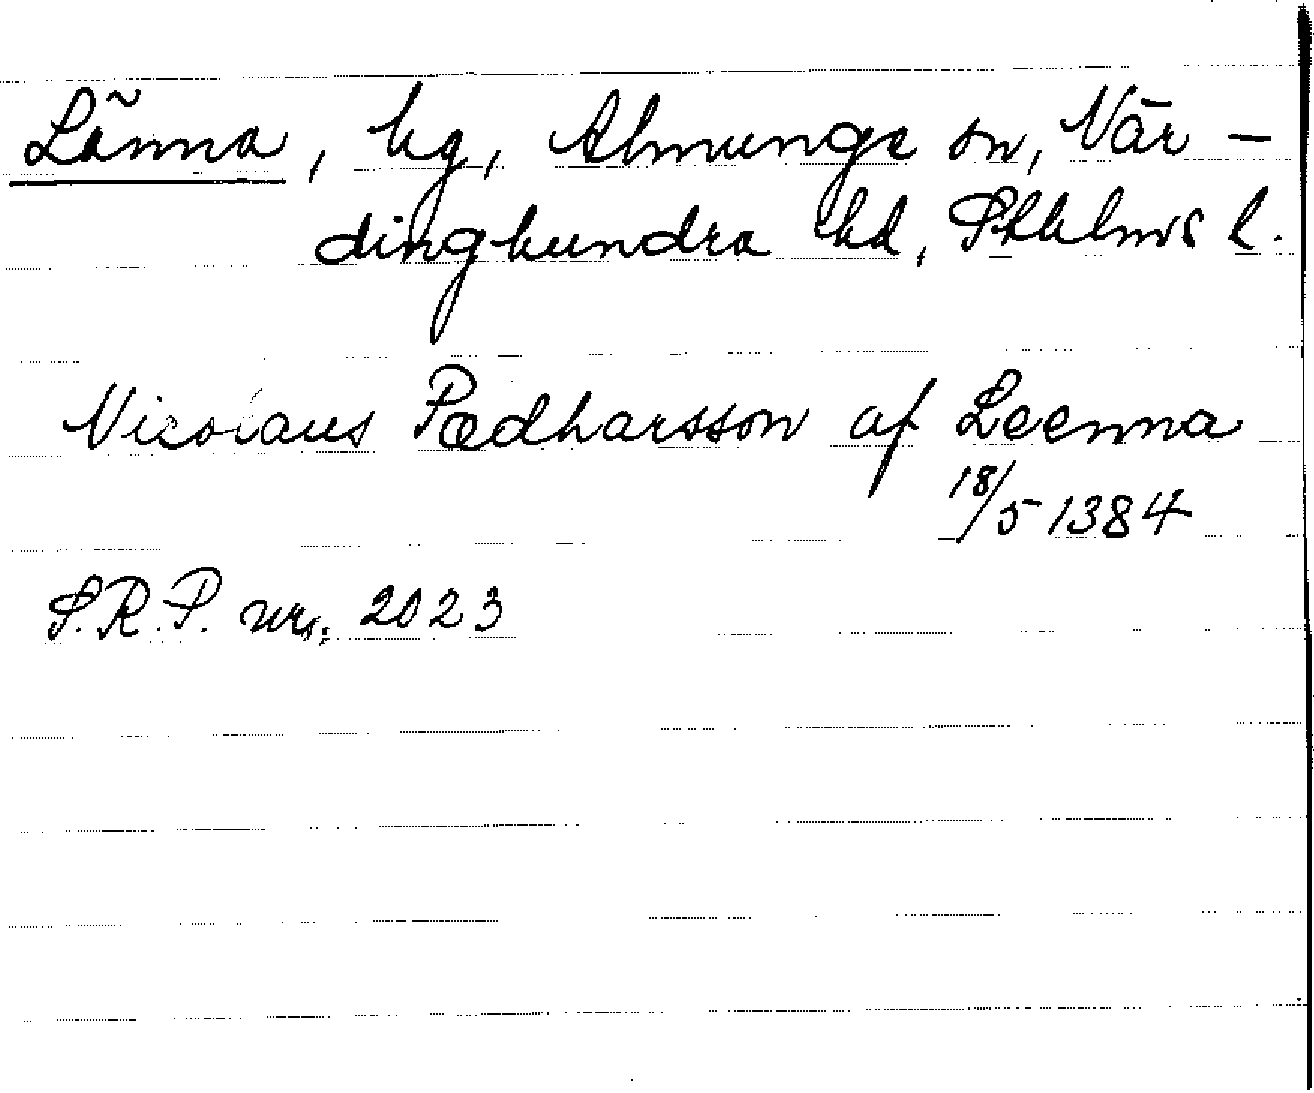 Länna, bg, Almunge sn, När-
dinghundra hd, Sthlms l.
Nicolaus Pædharsson af Leenna
18/5 1384
S.R.P. nr. 2023